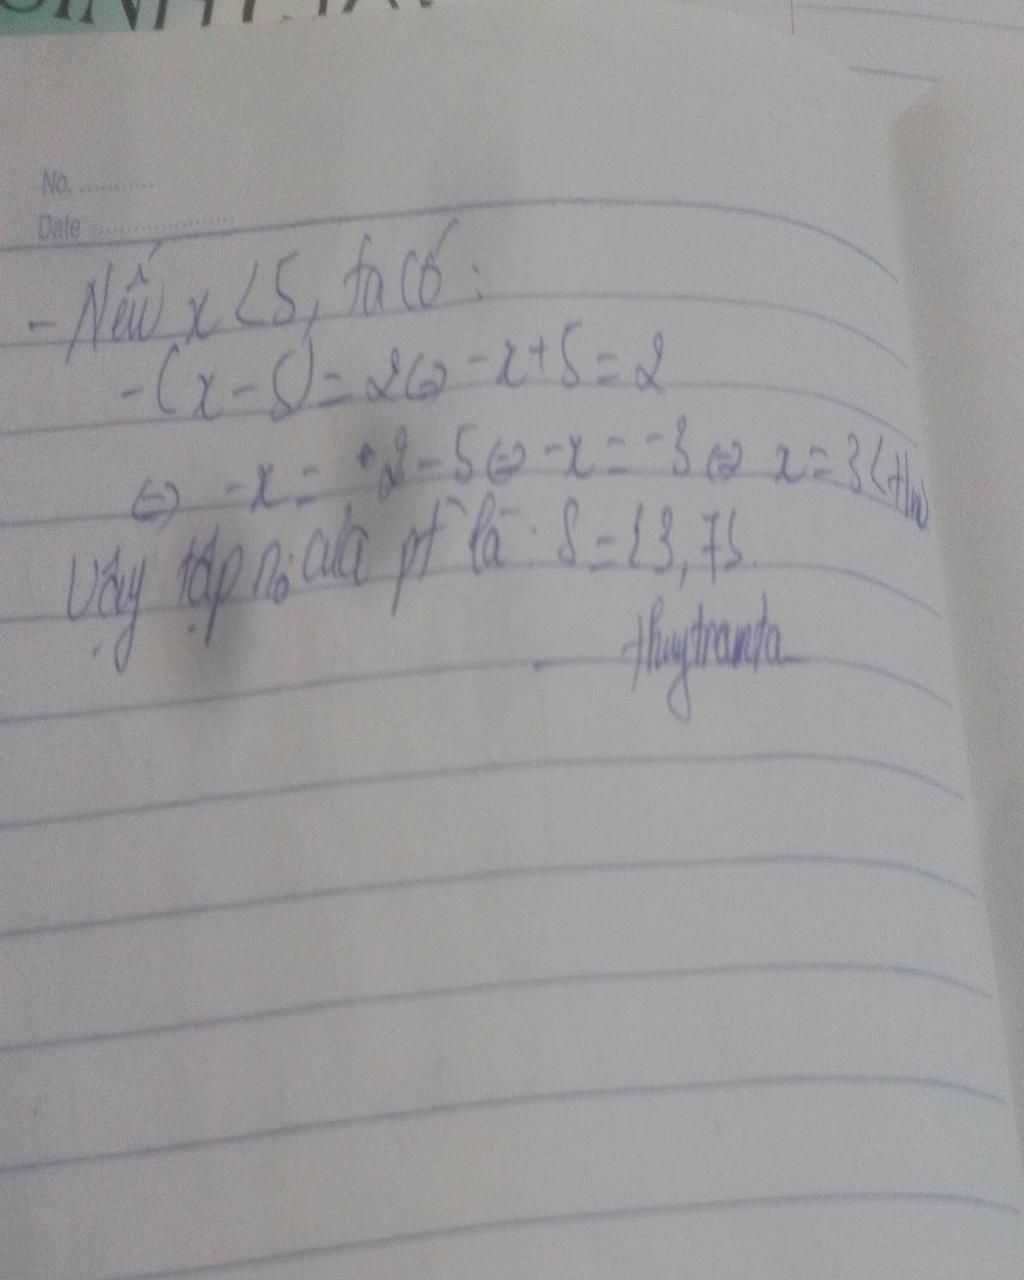 No. ............
Date ......................
- Nếu x < 5, ta có :
-(x - 5) = 2 ⇔ -x + 5 = 2
⇔ -x = 2 - 5 ⇔ -x = -3 ⇔ x = 3 (thm)
Vậy tập no của pt là : S = {3, 7}.
thuytranta